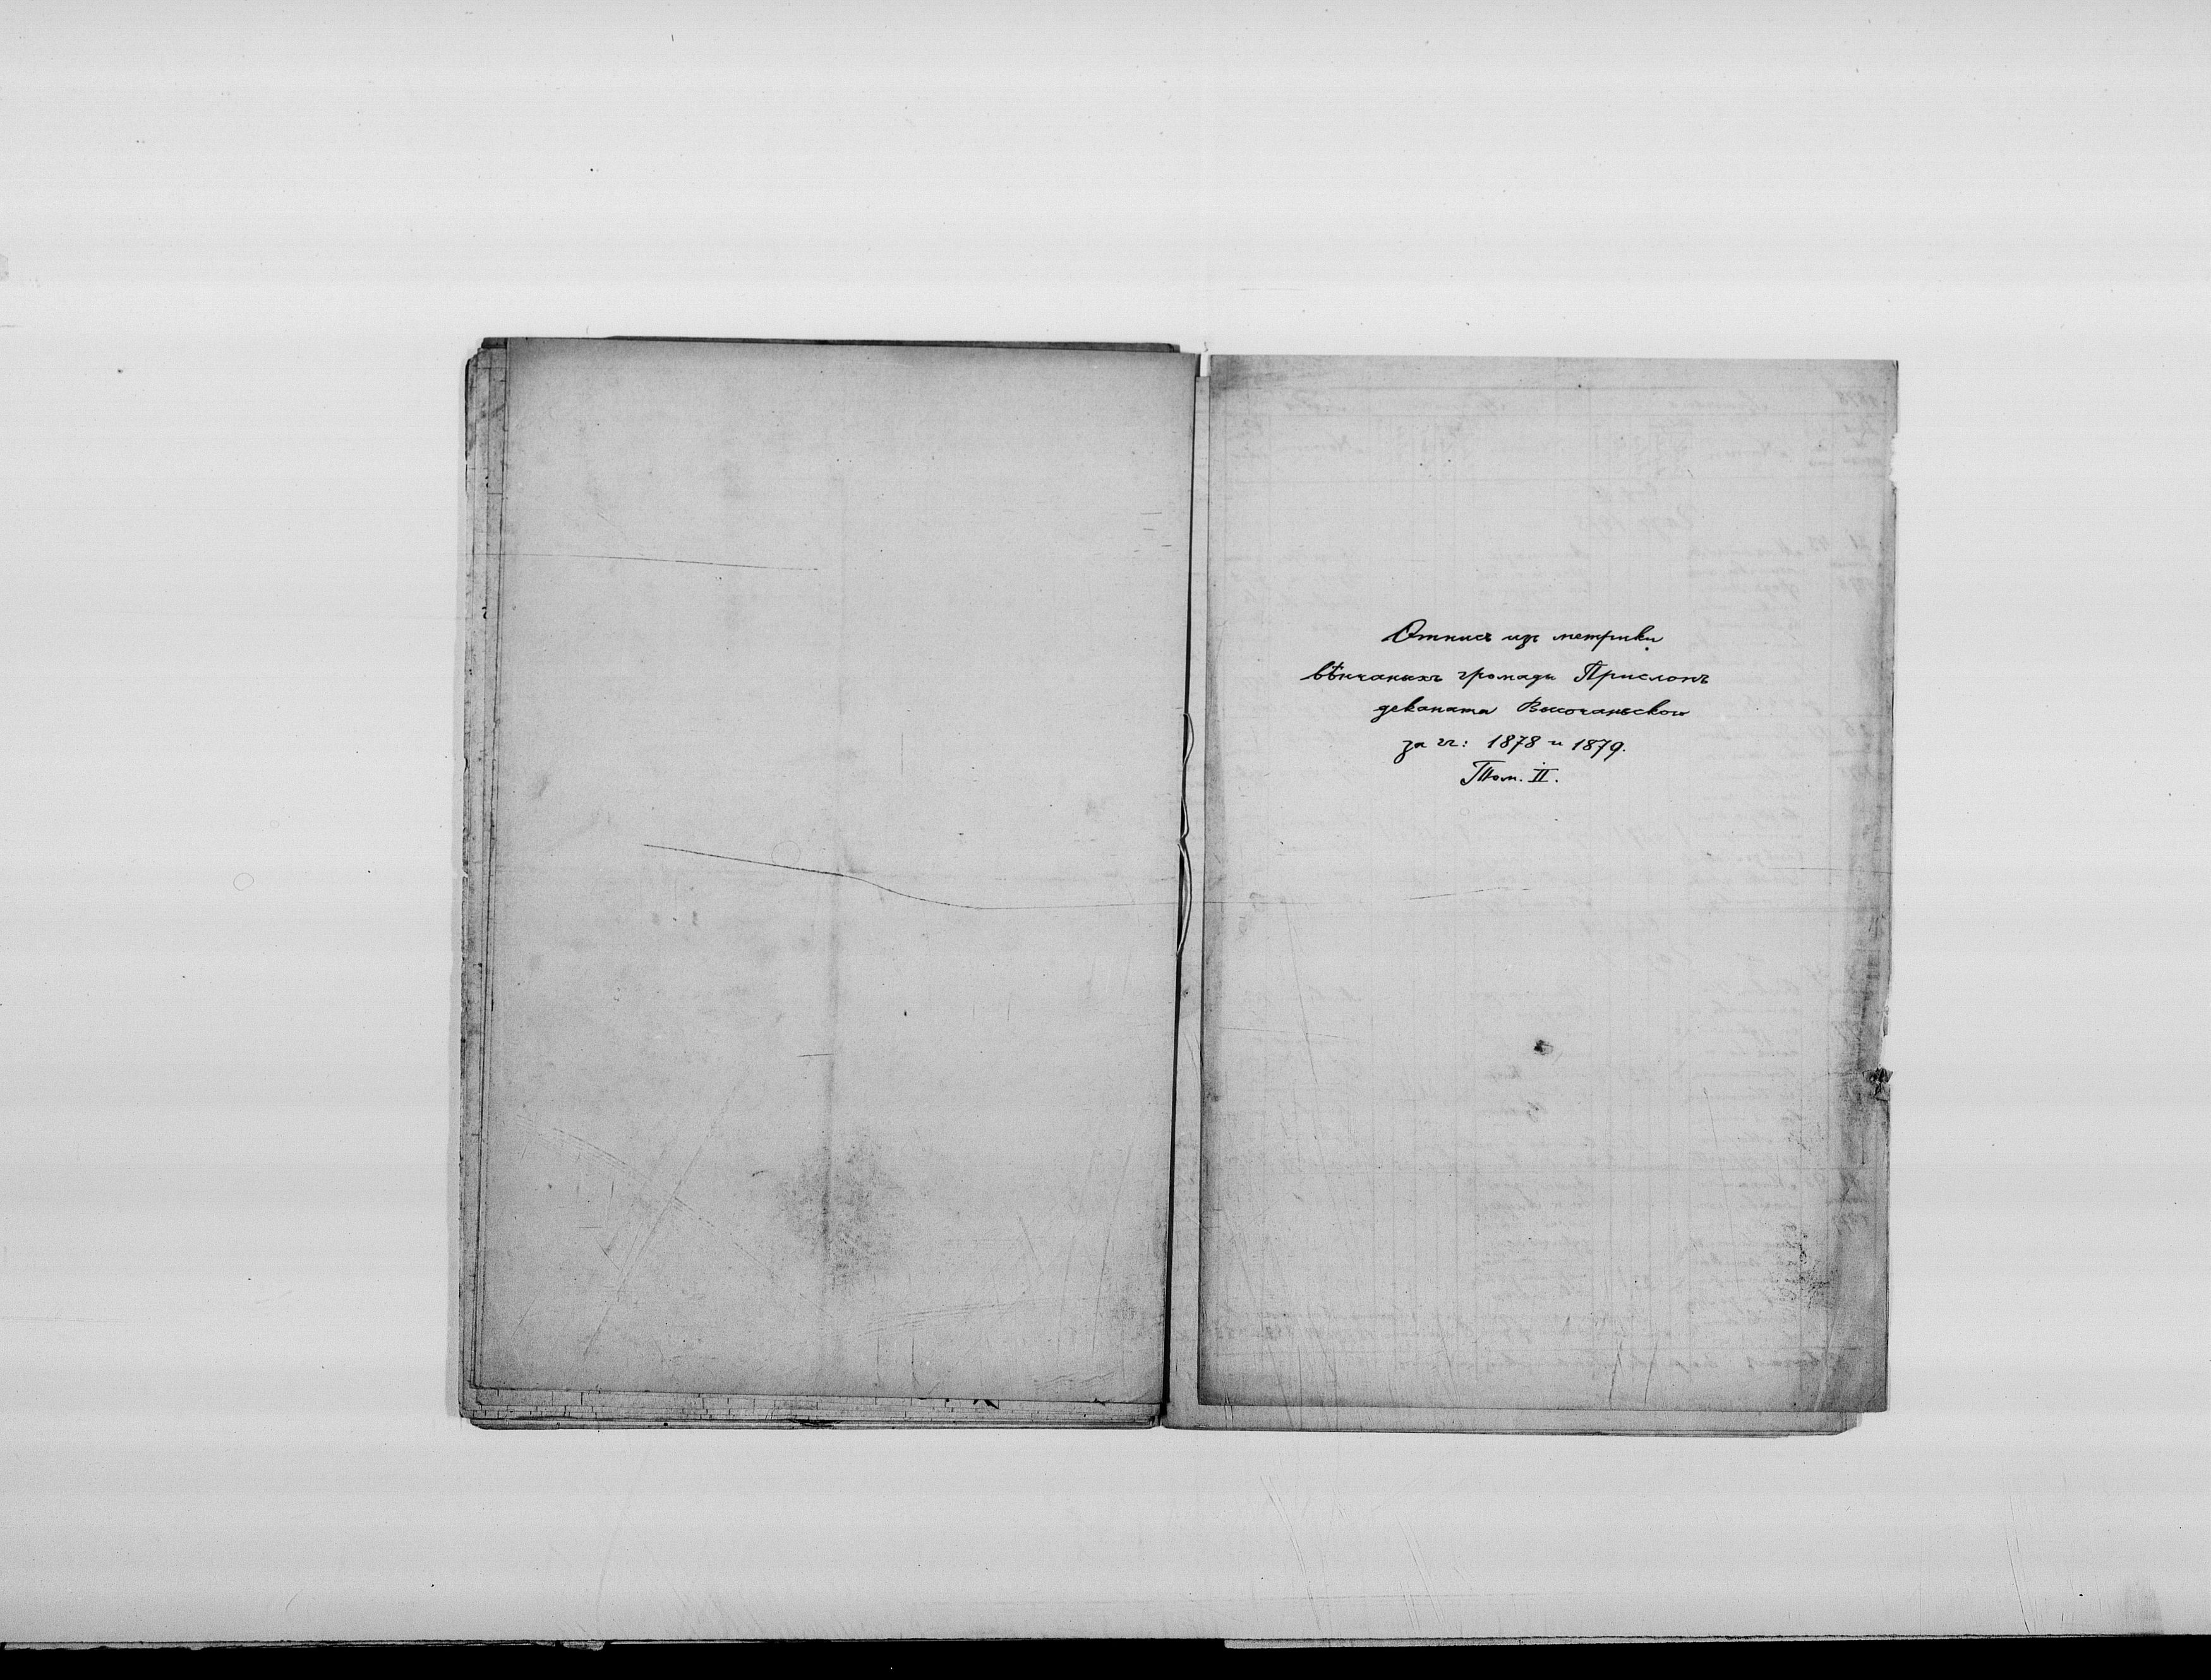 Отпись изъ метрики
вѣнчаныхъ громады Прислопъ
деканата Височаньского
за гг: 1878 и 1879.
Том. II.